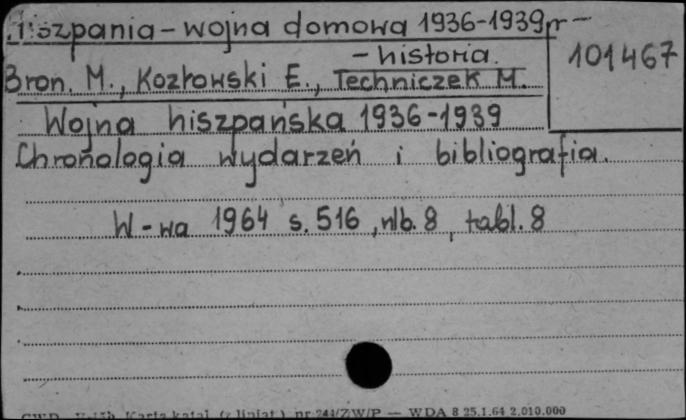 Hiszpania - wojna domowa 1936-1939 r -
- historia.
101467
Bron. M., Kozłowski E., Techniczek M.
Wojna hiszpańska 1936-1939
Chronologia wydarzeń i bibliografia.
W-wa 1964 s. 516, nlb. 8, tabl. 8
Karta katal. (z liniat.) nr 244/ZW/P — WDA 8 25.1.64 2.010.000